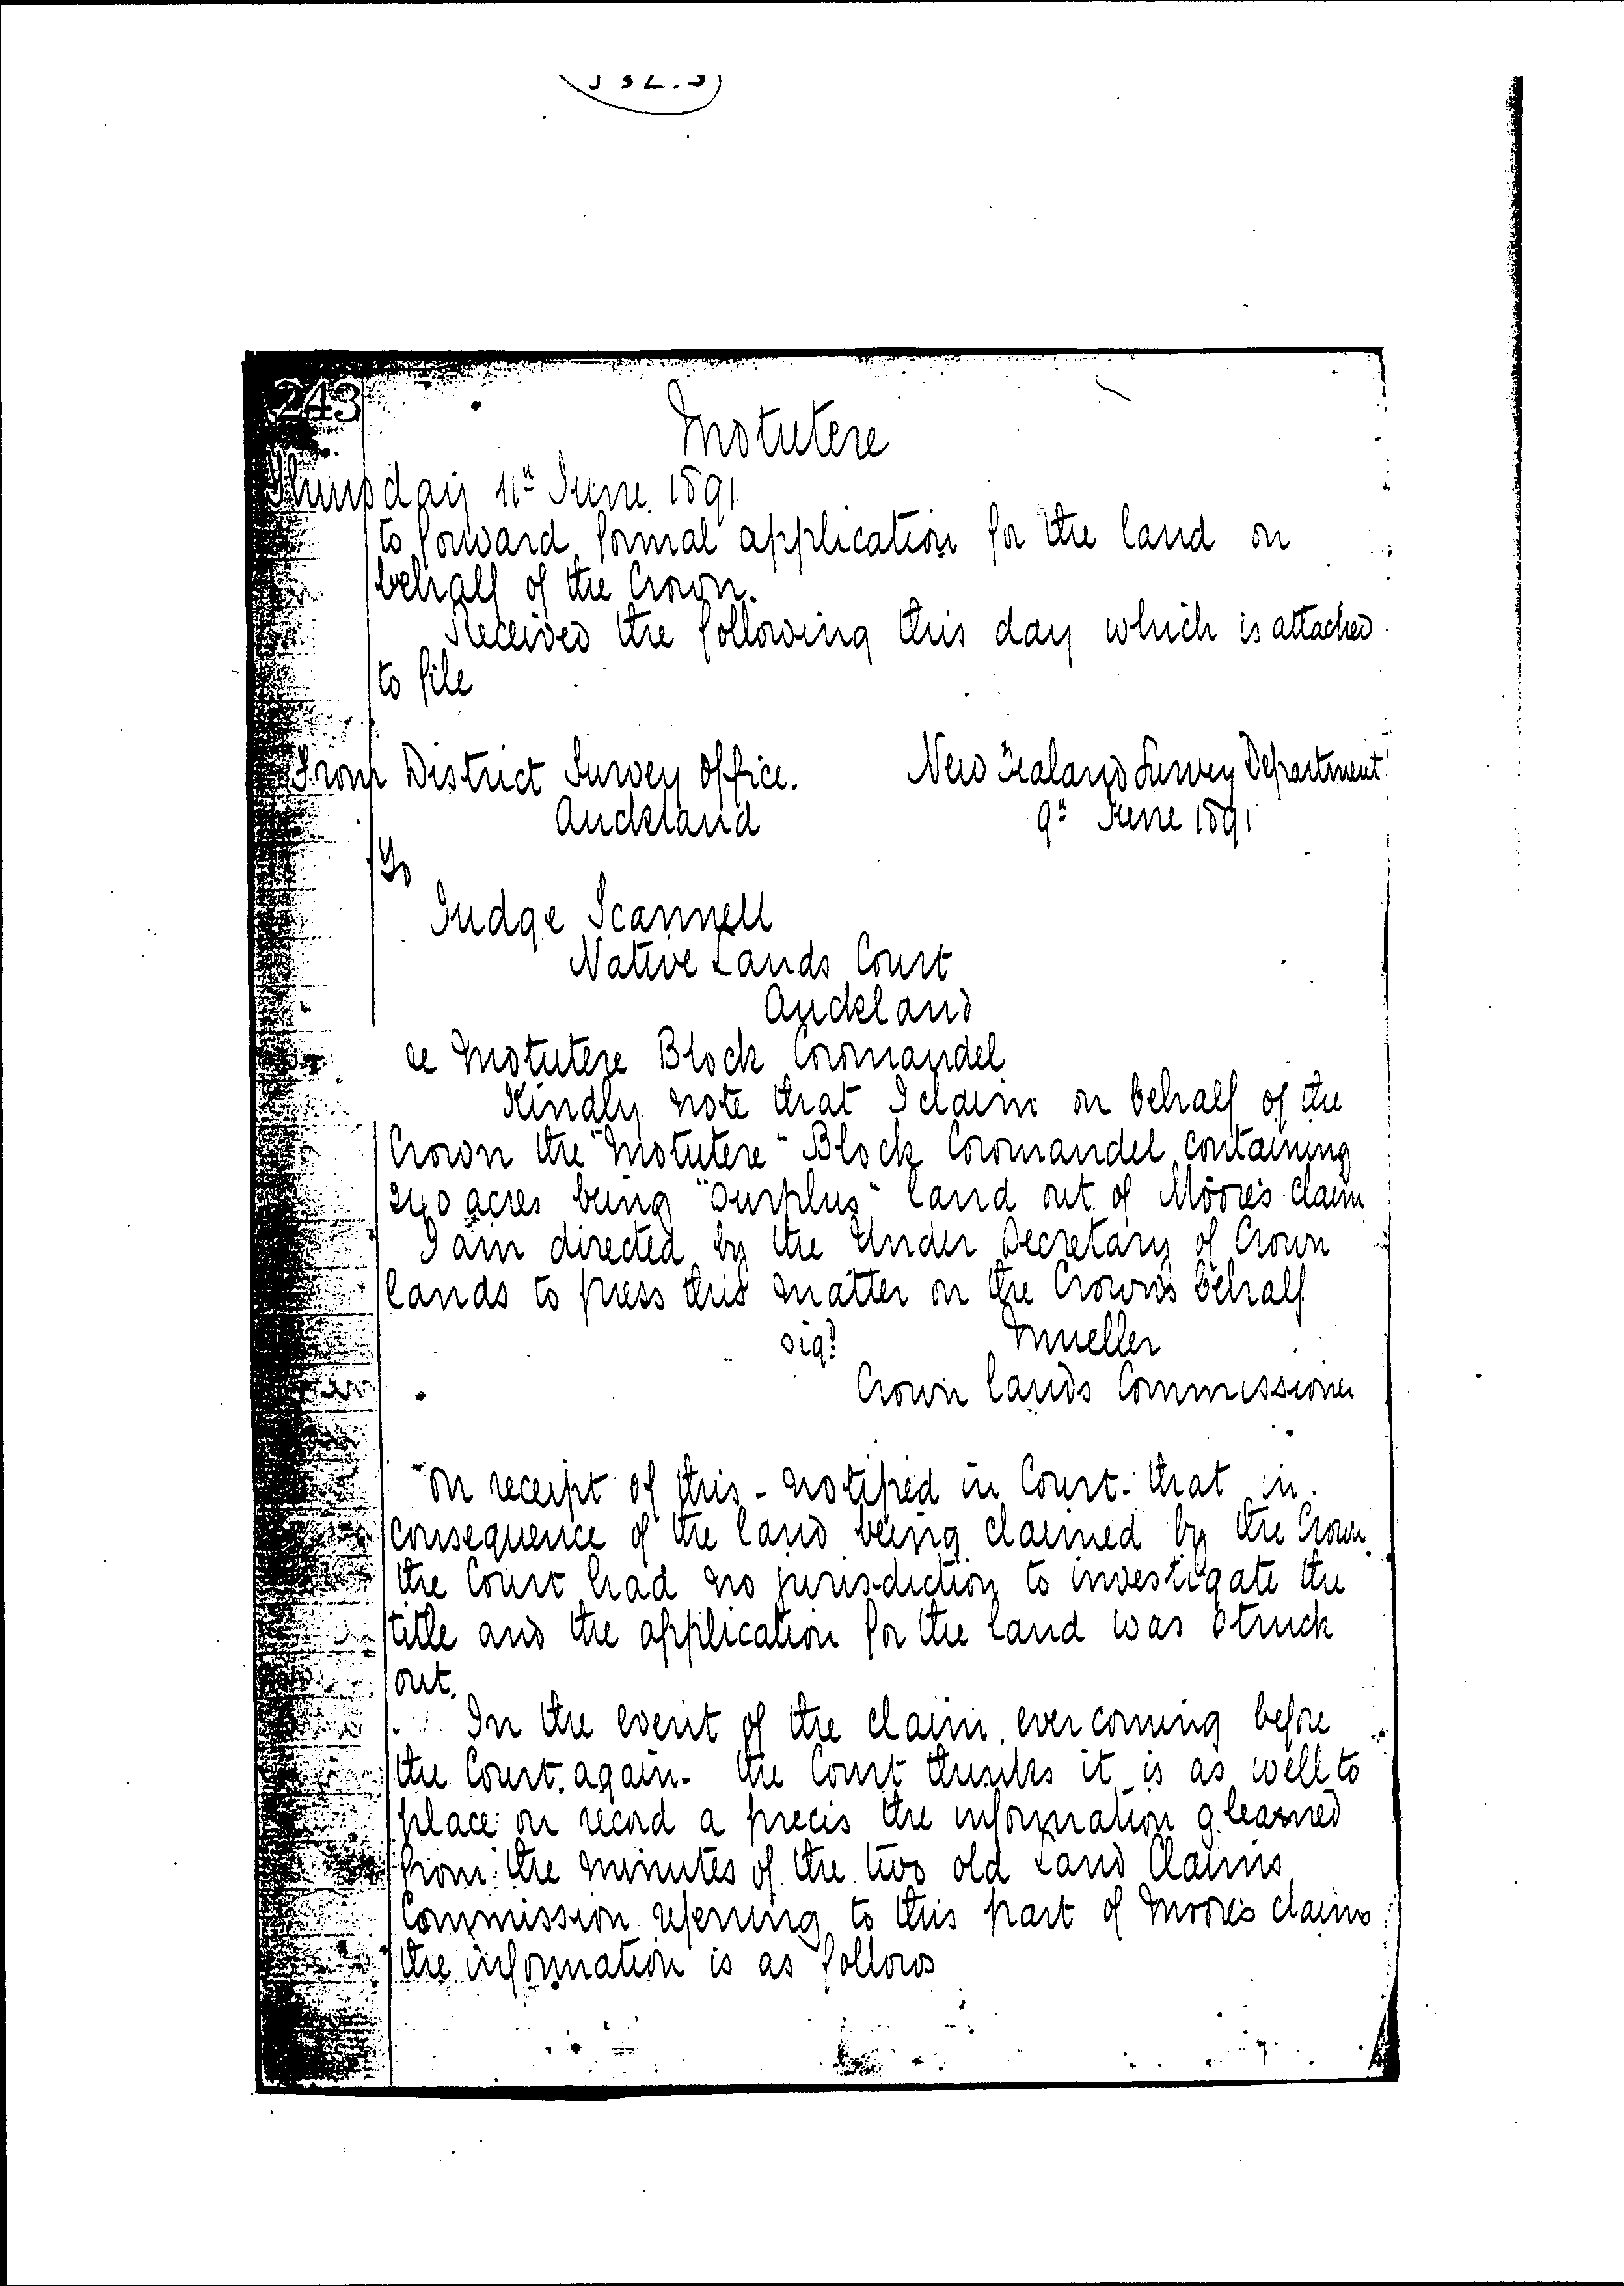 243
Motutere
Thursday 11th June 1891
to forward formal application for the land on
behalf of the Crown.
Received the following this day which is attached
to file
From District Survey Office. New Zealand Survey Department
Auckland 9th June 1891
To
Judge Scannell
Native Lands Court
Auckland
re Motutere Block Coromandel
Kindly note that I claim on behalf of the
Crown the "Motutere" Block Coromandel containing
240 acres being "Surplus" land out of Moore's claim
I am directed by the Under Secretary of Crown
lands to press this matter on the Crown's behalf
sigd Mueller
Crown Lands Commissioner
On receipt of this - notified in Court. that in
consequence of the land being claimed by the Crown
the Court had no jurisdiction to investigate the
title and the application for the land was struck
out.
In the event of the claim ever coming before
the Court again - the Court thinks it is as well to
place on record a precis the information gleaned
from the minutes of the two old Land Claims
Commission referring to this part of Moore's claims
the information is as follows